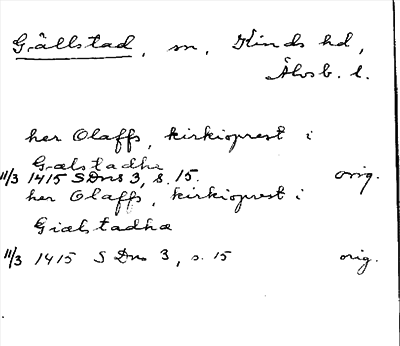 Grällstad, sn, Kinds hd,
Älvsb. l.
her Olaffs, kirkioprest i
Grælstadha
11/3 1415 SDns 3, s. 15. orig.
her Olaffs, kirkioprest i
Giælstadhæ
11/3 1415 SDns 3, s. 15 orig.